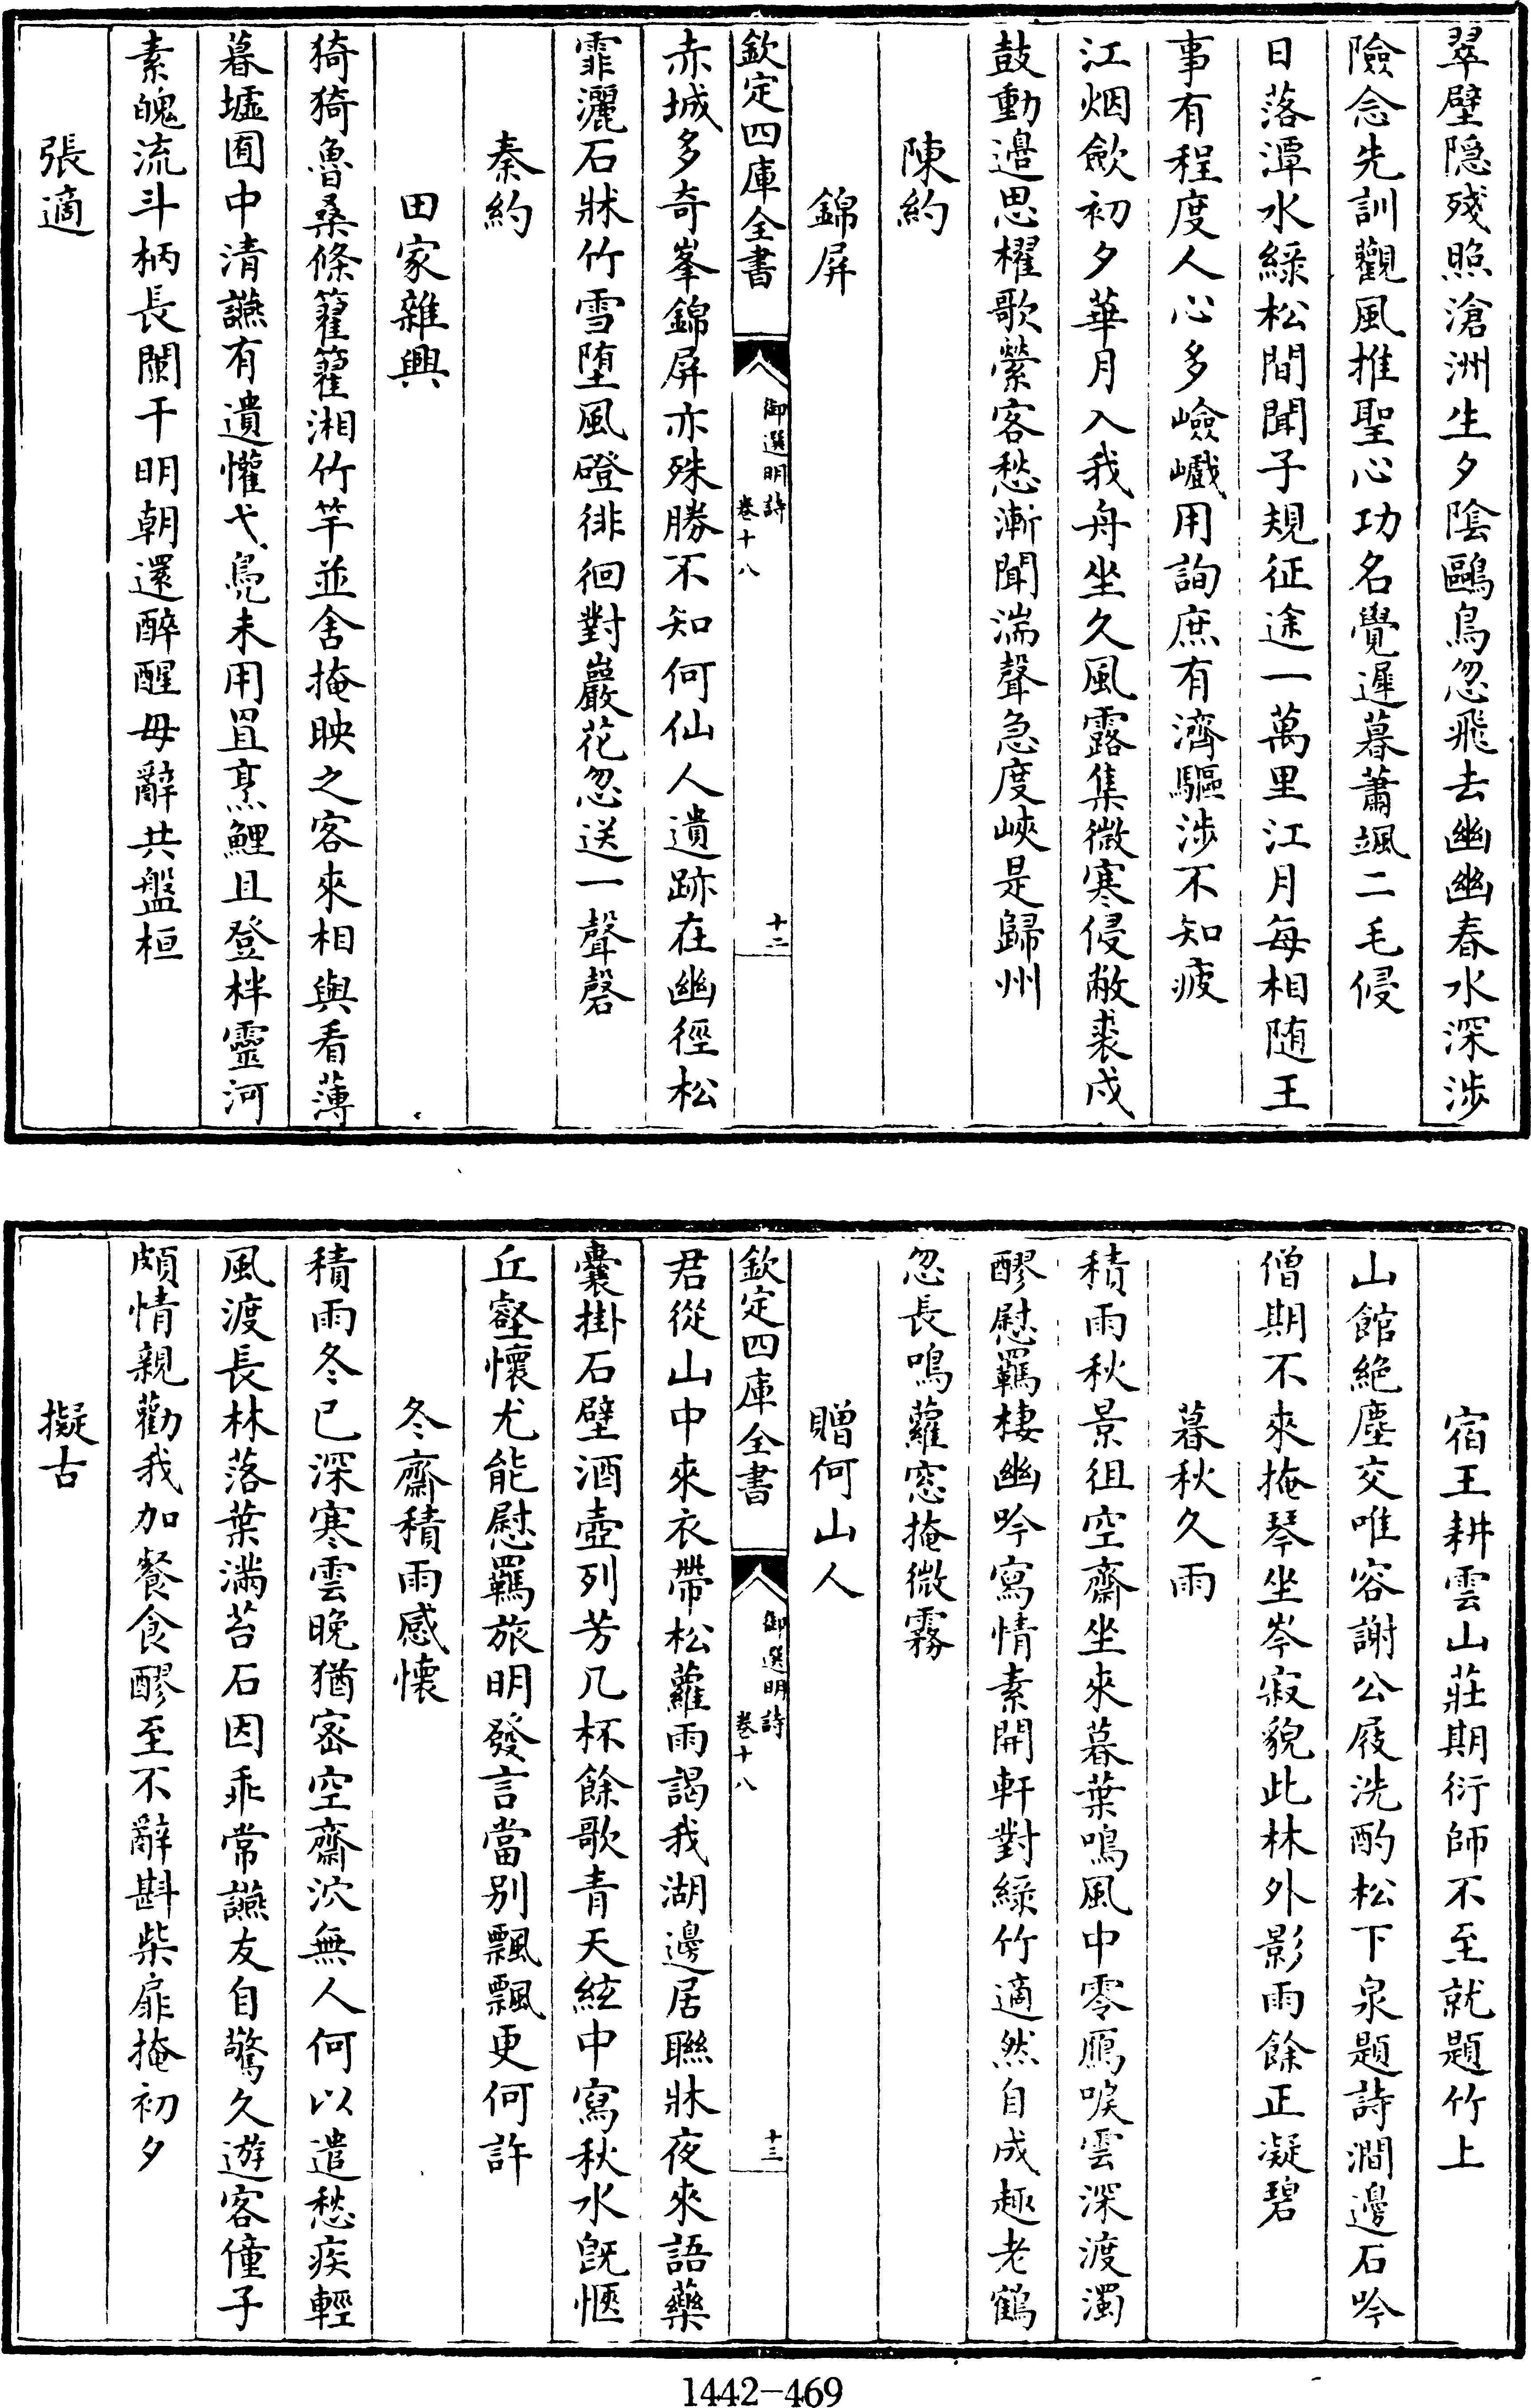 翠壁隠殘照滄洲生夕陰鷗鳥忽飛去幽幽春水深涉
險念先訓觀風推聖心功名覺遲暮蕭颯二毛侵
日落潭水綠松間聞子規征途一萬里江月每相随王
事有程度人心多嶮巇用詢庶有濟驅涉不知疲
江烟歛初夕華月入我舟坐久風露集微寒侵敝裘戍
鼓動邉思櫂歌縈客愁漸聞湍聲急度峽是歸州
陳約
錦屏
欽定四庫全書
御選明詩
卷十八
十二
赤城多奇峯錦屏亦殊勝不知何仙人遺跡在幽徑松
霏灑石牀竹雪堕風磴徘徊對巖花忽送一聲磬
秦約
田家雜興
猗猗魯桑條籊籊湘竹竿並舍掩映之客來相與看薄
暮墟囿中清讌有遺懽弋鳧未用罝烹鯉且登柈靈河
素魄流斗柄長闌干明朝還醉醒毋辭共盤桓
張適
宿王耕雲山莊期衍師不至就題竹上
山館絶塵交唯容謝公屐洗酌松下泉題詩澗邊石吟
僧期不來掩琴坐岑寂貌此林外影雨餘正凝碧
暮秋久雨
積雨秋景徂空齋坐來暮葉鳴風中零鴈唳雲深渡濁
醪慰羈棲幽吟寫情素開軒對綠竹適然自成趣老鶴
忽長鳴蘿窓掩微霧
贈何山人
欽定四庫全書
御選明詩
卷十八
十三
君從山中來衣帶松蘿雨謁我湖邊居聯牀夜來語藥
囊掛石壁酒壺列芳几杯餘歌青天絃中寫秋水旣愜
丘壑懷尤能慰羈旅明發言當别飄飄更何許
冬齋積雨感懷
積雨冬已深寒雲晚猶宻空齋泬無人何以遣愁疾輕
風渡長林落葉滿苔石因乖常讌友自驚久遊客僮子
頗情親勸我加餐食醪至不辭斟柴扉掩初夕
擬古
1442-469